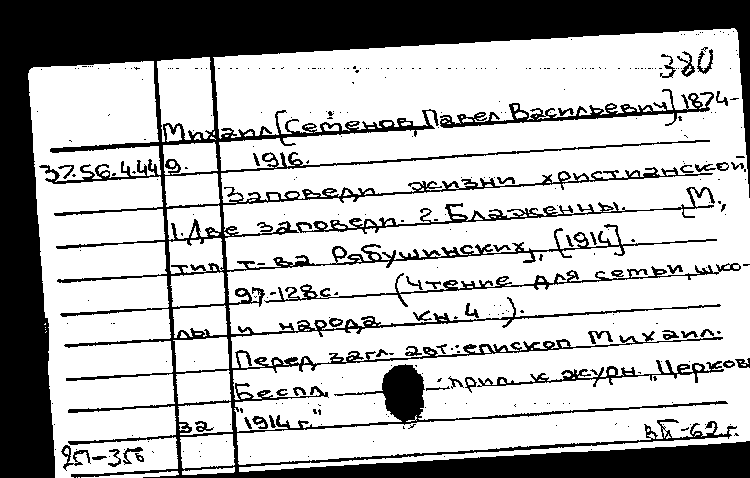 380
Михаил [Семенов, Павел Васильевич], 1874-
37.56.4.449. 1916.
Заповеди жизни христианской,
1. Две заповеди. 2. Блаженны. [М.,
тип. т-ва Рябушинских], [1914].
97-128 с. (Чтение для семьи, шко-
лы и народа кн. 4 ).
Перед загл. авт.: епископ Михаил.
Беспл. прил. к журн. "Церковь
за "1914 г."
251-358